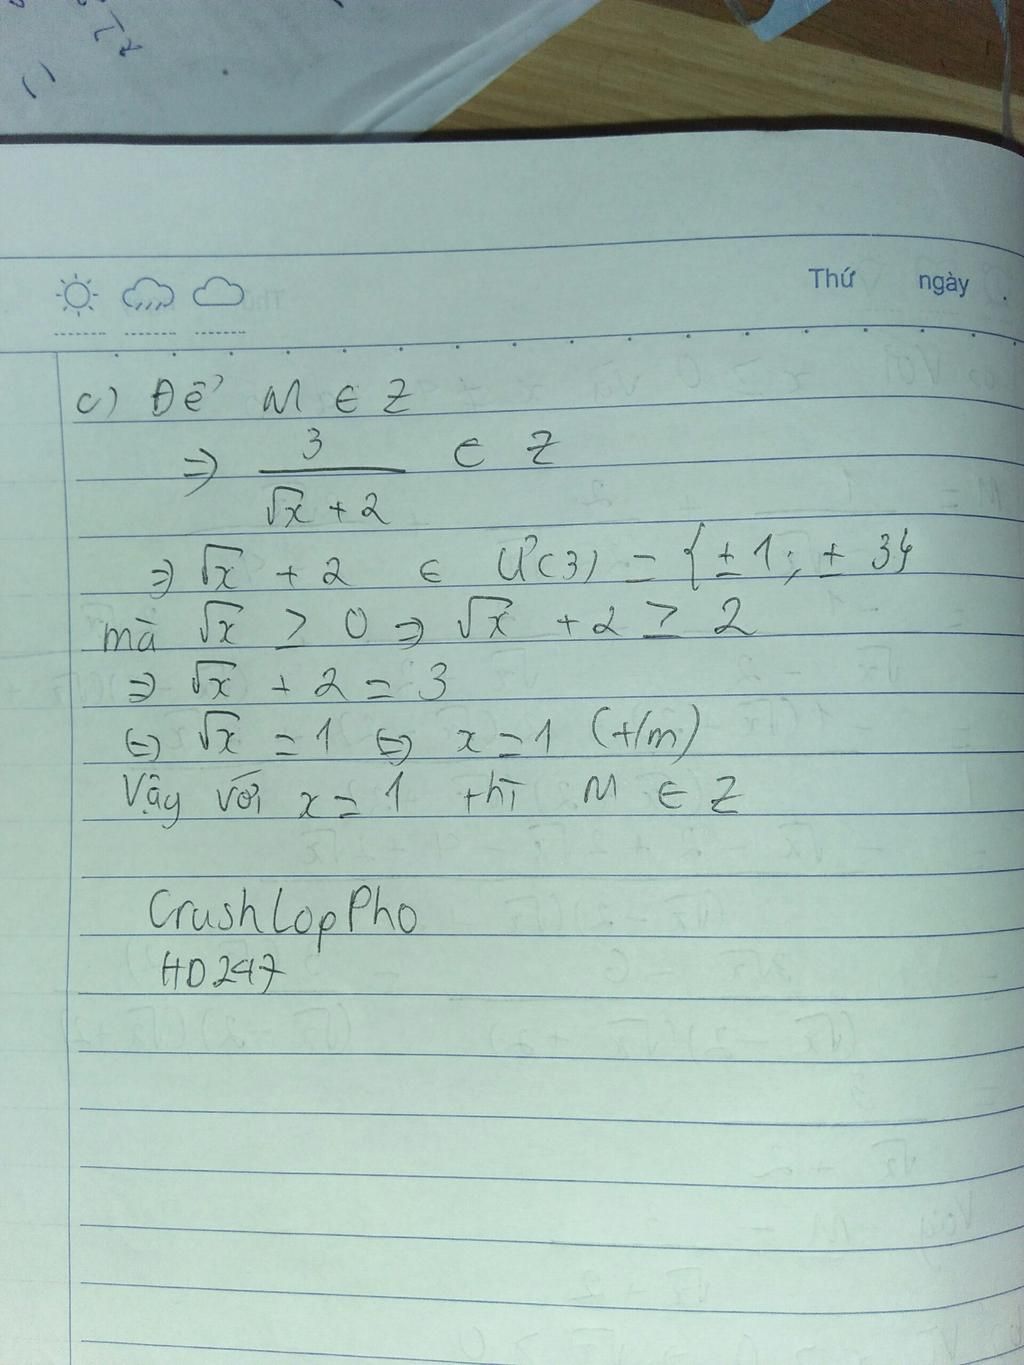 Thứ ngày
c) Để M ∈ Z
⇒ 3 / (√x + 2) ∈ Z
⇒ √x + 2 ∈ Ư(3) = {±1; ±3}
mà √x ≥ 0 ⇒ √x + 2 ≥ 2
⇒ √x + 2 = 3
⇔ √x = 1 ⇔ x = 1 (t/m)
Vậy với x = 1 thì M ∈ Z
CrushLopPho
HD247